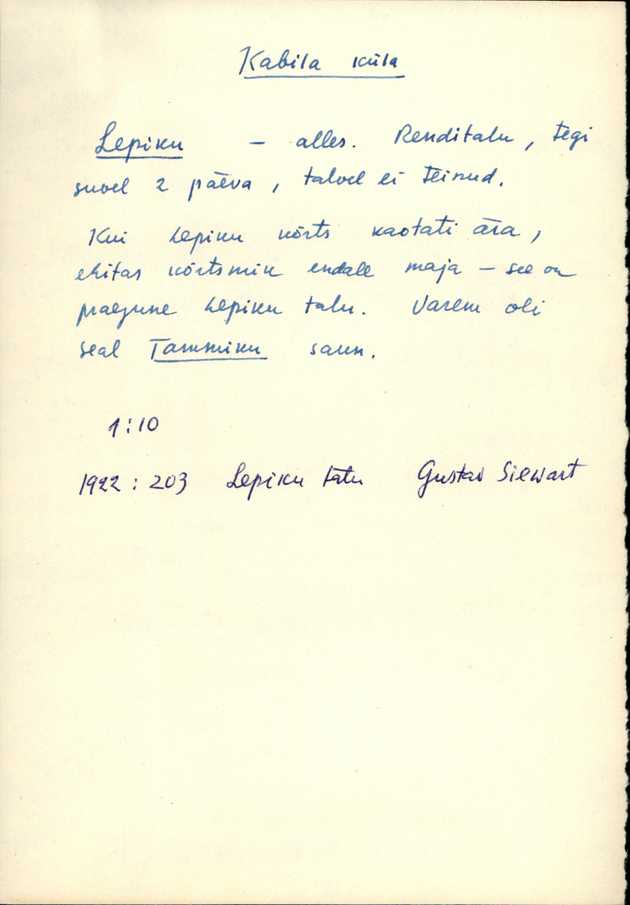 Kabila küla
Lepiku – alles. Renditalu, tegi
suvel 2 päeva, talvel ei teinud.
Kui Lepiku kõrts kaotati ära,
ehitas kõrtsmik endale maja – see on
praegune Lepiku talu. Varem oli
seal Tammiku saun.
1:10
1922: 203 Lepiku talu Gustav Siewart